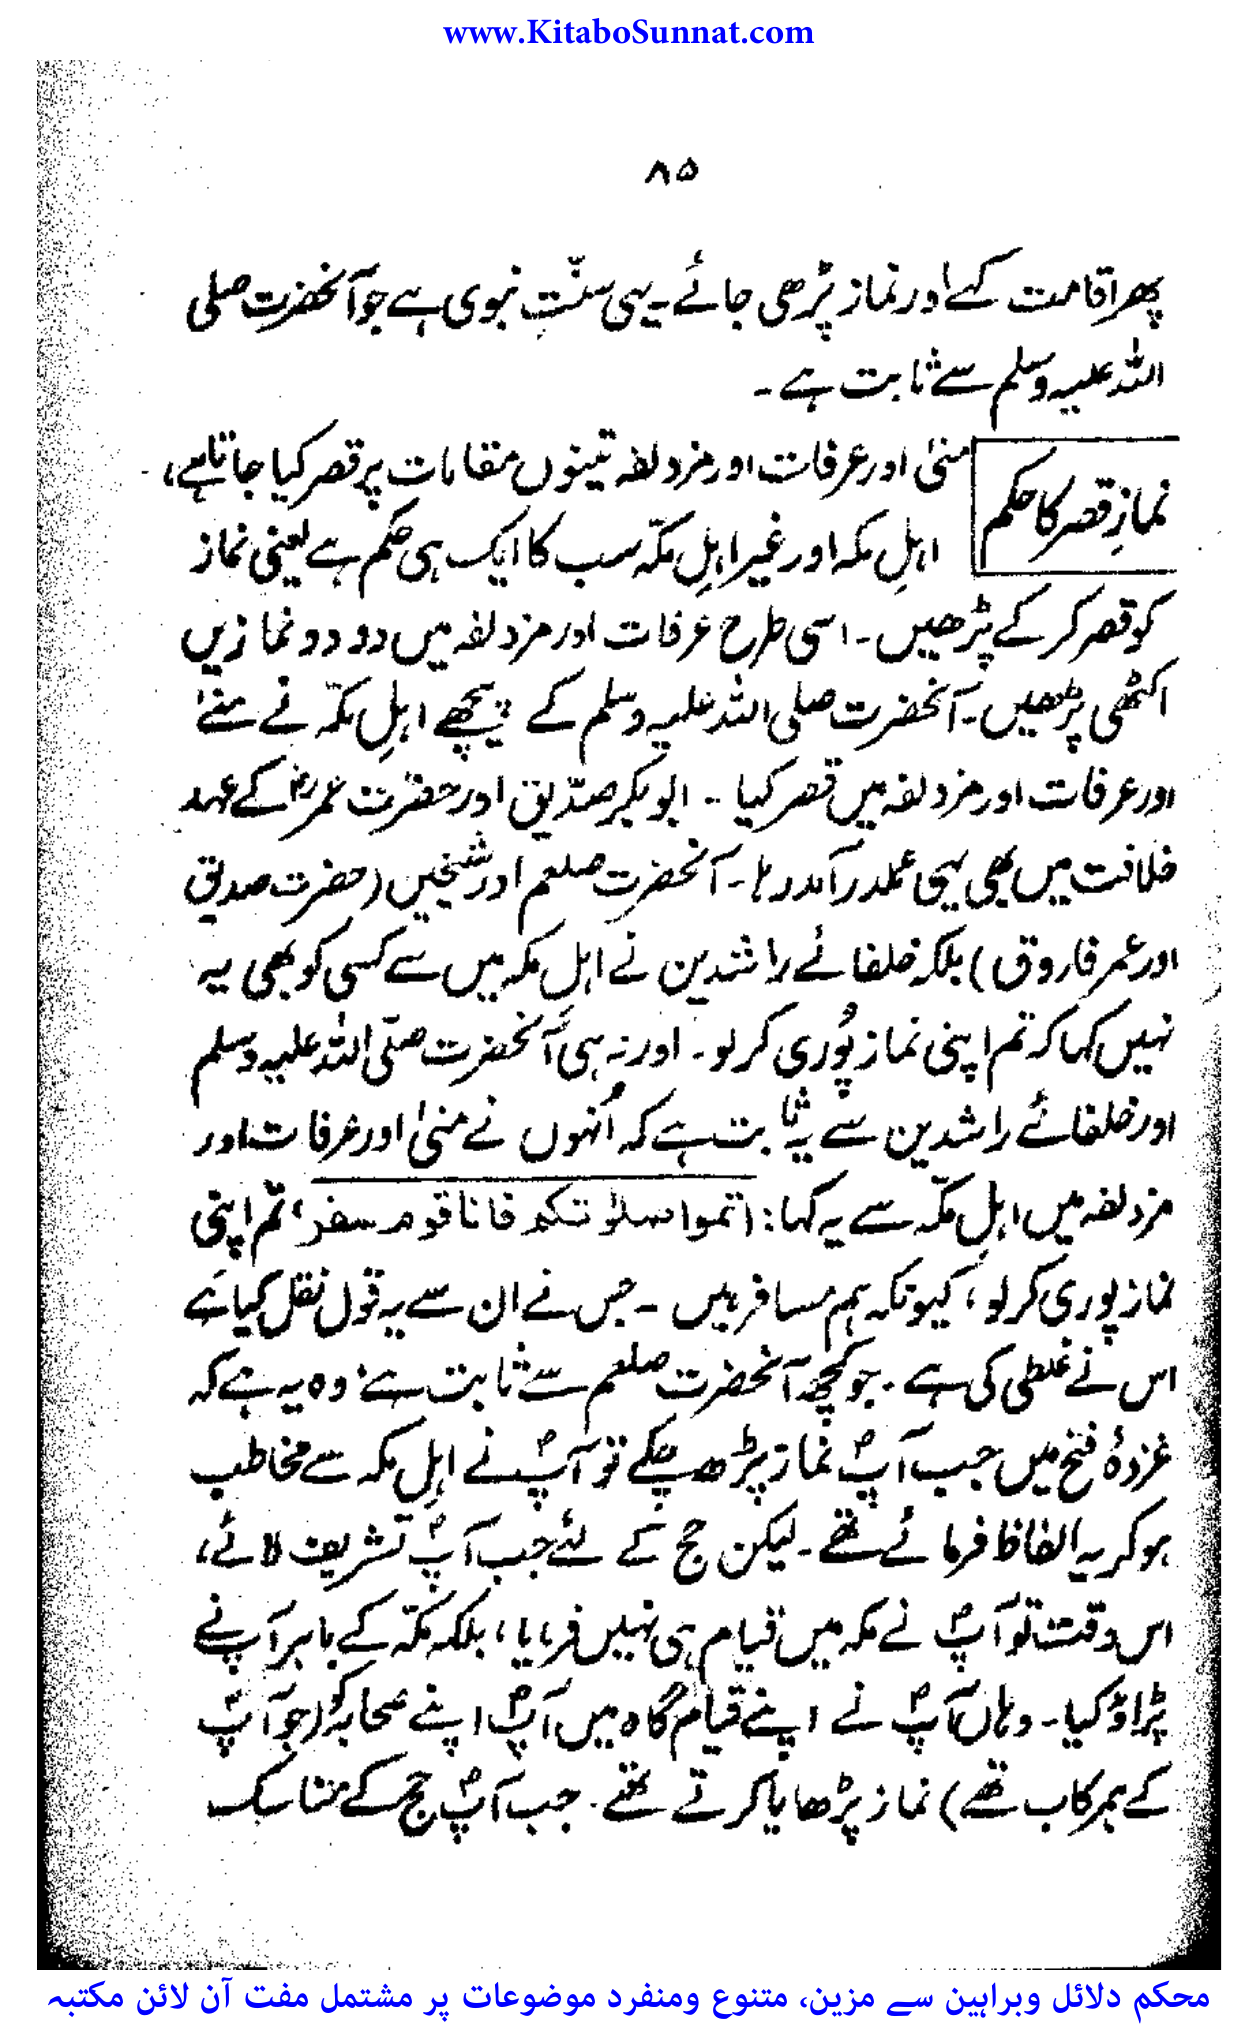 www.KitaboSunnat.com
۸۵
پھر اقامت کہے اور نماز پڑھی جائے۔ یہی سنّتِ نبوی ہے جو آنحضرت صلی
اللہ علیہ وسلم سے ثابت ہے۔
نمازِ قصر کا حکم
منیٰ اور عرفات اور مزدلفہ تینوں مقامات پر قصر کیا جاتا ہے،
اہلِ مکہ اور غیر اہلِ مکّہ سب کا ایک ہی حکم ہے یعنی نماز
کو قصر کر کے پڑھیں۔ اسی طرح عرفات اور مزدلفہ میں دو دو نمازیں
اکٹھی پڑھیں۔ آنحضرت صلی اللہ علیہ وسلم کے پیچھے اہلِ مکّہ نے منےٰ
اور عرفات اور مزدلفہ میں قصر کیا۔ ابوبکر صدّیق اور حضرت عمرؓ کے عہد
خلافت میں بھی یہی عملدرآمد رہا۔ آنحضرت صلعم اور شیخین (حضرت صدیق
اور عمر فاروق) بلکہ خلفائے راشدین نے اہلِ مکہ میں سے کسی کو بھی یہ
نہیں کہا کہ تم اپنی نماز پُوری کر لو۔ اور نہ ہی آنحضرت صلّی اللہ علیہ وسلم
اور خلفائے راشدین سے یہ ثابت ہے کہ اُنہوں نے منیٰ اور عرفات اور
مزدلفہ میں اہلِ مکّہ سے یہ کہا: اتموا صلوٰتکم فانا قوم سفر، تم اپنی
نماز پوری کر لو، کیونکہ ہم مسافر ہیں۔ جس نے ان سے یہ قول نقل کیا ہے
اس نے غلطی کی ہے۔ جو کچھ آنحضرت صلعم سے ثابت ہے، وہ یہ ہے کہ
غزوۂ فتح میں جب آپؐ نماز پڑھ چکے تو آپؐ نے اہلِ مکہ سے مخاطب
ہو کر یہ الفاظ فرمائے تھے۔ لیکن حج کے لئے جب آپؐ تشریف لائے،
اس وقت تو آپؐ نے مکہ میں قیام ہی نہیں فرمایا، بلکہ مکّہ کے باہر آپ نے
پڑاؤ کیا۔ وہاں آپؐ نے اپنے قیام گاہ میں آپؐ اپنے صحابہؓ کو (جو آپؐ
کے ہمرکاب تھے) نماز پڑھایا کرتے تھے۔ جب آپؐ حج کے مناسک
محکم دلائل وبراہین سے مزین، متنوع ومنفرد موضوعات پر مشتمل مفت آن لائن مکتبہ